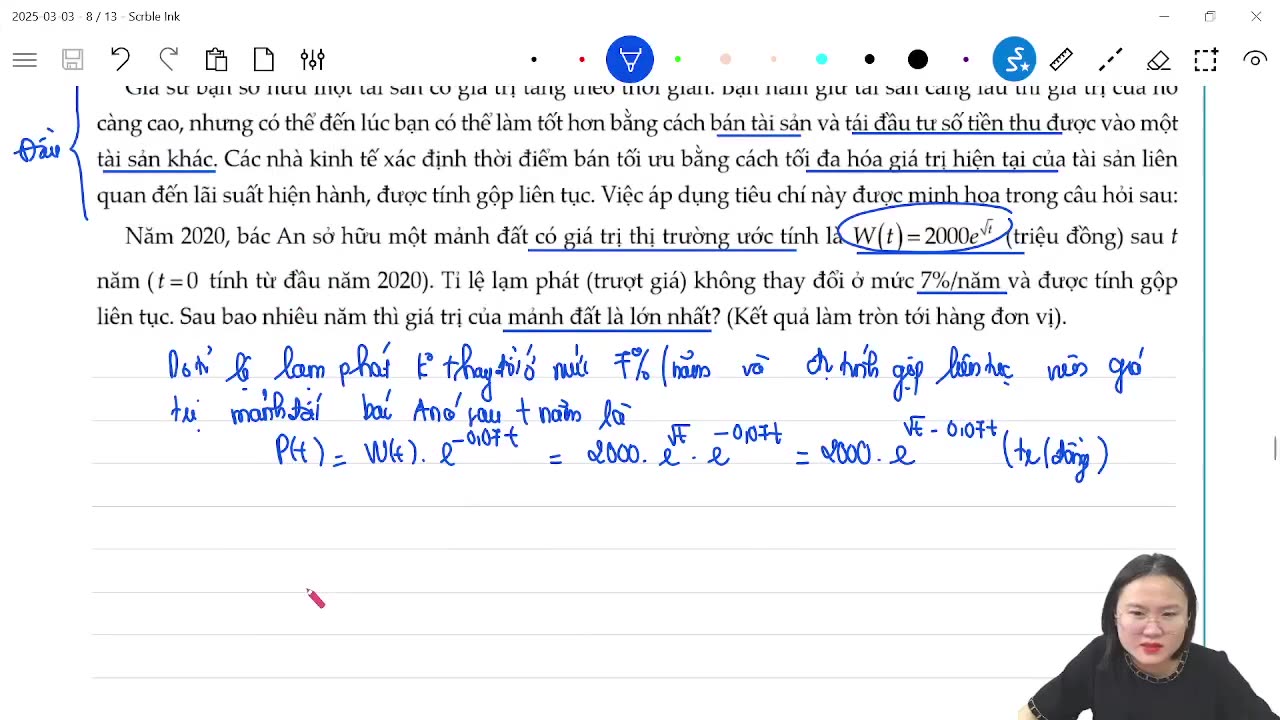 2025-03-03 - 8 / 13 - Scrble Ink
Giả sử bạn sở hữu một tài sản có giá trị tăng theo thời gian. Bạn nắm giữ tài sản càng lâu thì giá trị của nó
càng cao, nhưng có thể đến lúc bạn có thể làm tốt hơn bằng cách bán tài sản và tái đầu tư số tiền thu được vào một
tài sản khác. Các nhà kinh tế xác định thời điểm bán tối ưu bằng cách tối đa hóa giá trị hiện tại của tài sản liên
quan đến lãi suất hiện hành, được tính gộp liên tục. Việc áp dụng tiêu chí này được minh họa trong câu hỏi sau:
Năm 2020, bác An sở hữu một mảnh đất có giá trị thị trường ước tính là W(t) = 2000e^{√t} (triệu đồng) sau t
năm (t = 0 tính từ đầu năm 2020). Tỉ lệ lạm phát (trượt giá) không thay đổi ở mức 7%/năm và được tính gộp
liên tục. Sau bao nhiêu năm thì giá trị của mảnh đất là lớn nhất? (Kết quả làm tròn tới hàng đơn vị).
lạm phát thay đổi ở mức 7%/năm và tính gộp liên tục nên giá
trị mảnh đất bác An sau t năm là
P(t) = W(t). e^{-0,07t} = 2000. e^{√t}. e^{-0,07t} = 2000. e^{√t - 0,07t} (tr đồng)